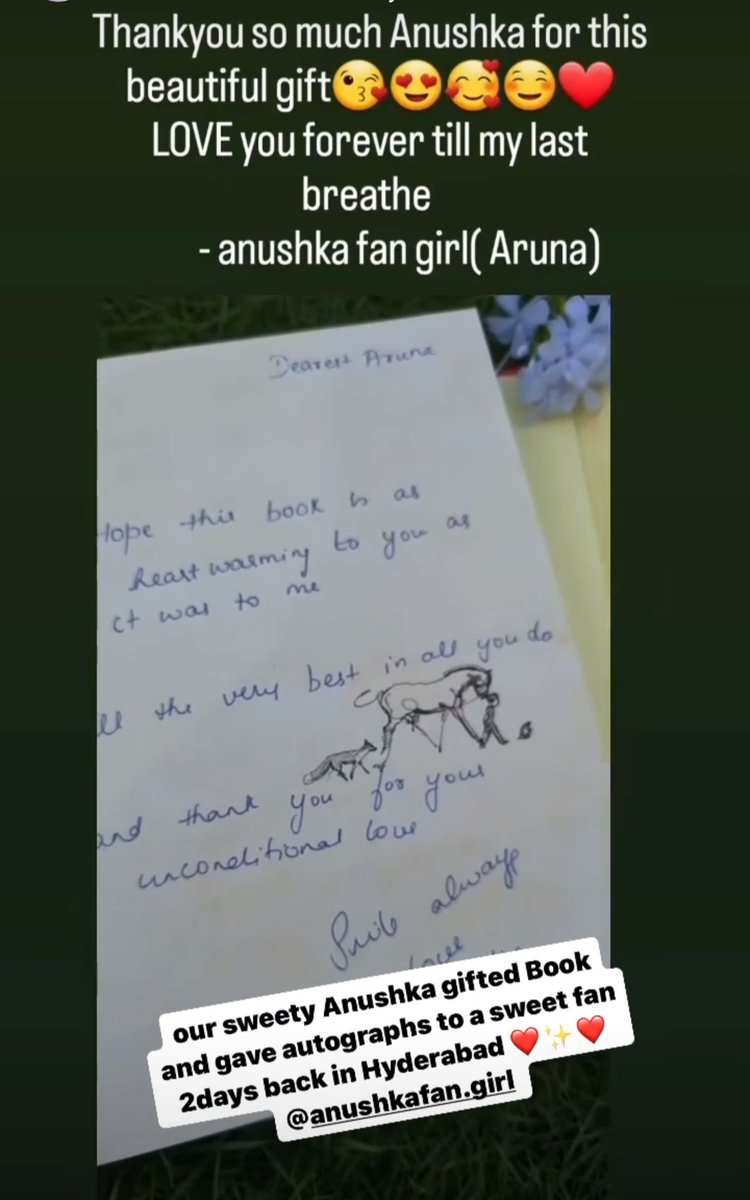 Thankyou so much Anushka for this
beautiful gift😘😍🥰☺️❤️
LOVE you forever till my last
breathe
- anushka fan girl( Aruna)
Dearest Aruna
Hope this book is as
heartwarming to you as
it was to me
the very best in all you do
and thank you for your
unconditional love
Smile always
love
our sweety Anushka gifted Book
and gave autographs to a sweet fan
2days back in Hyderabad ❤️✨❤️
@anushkafan.girl